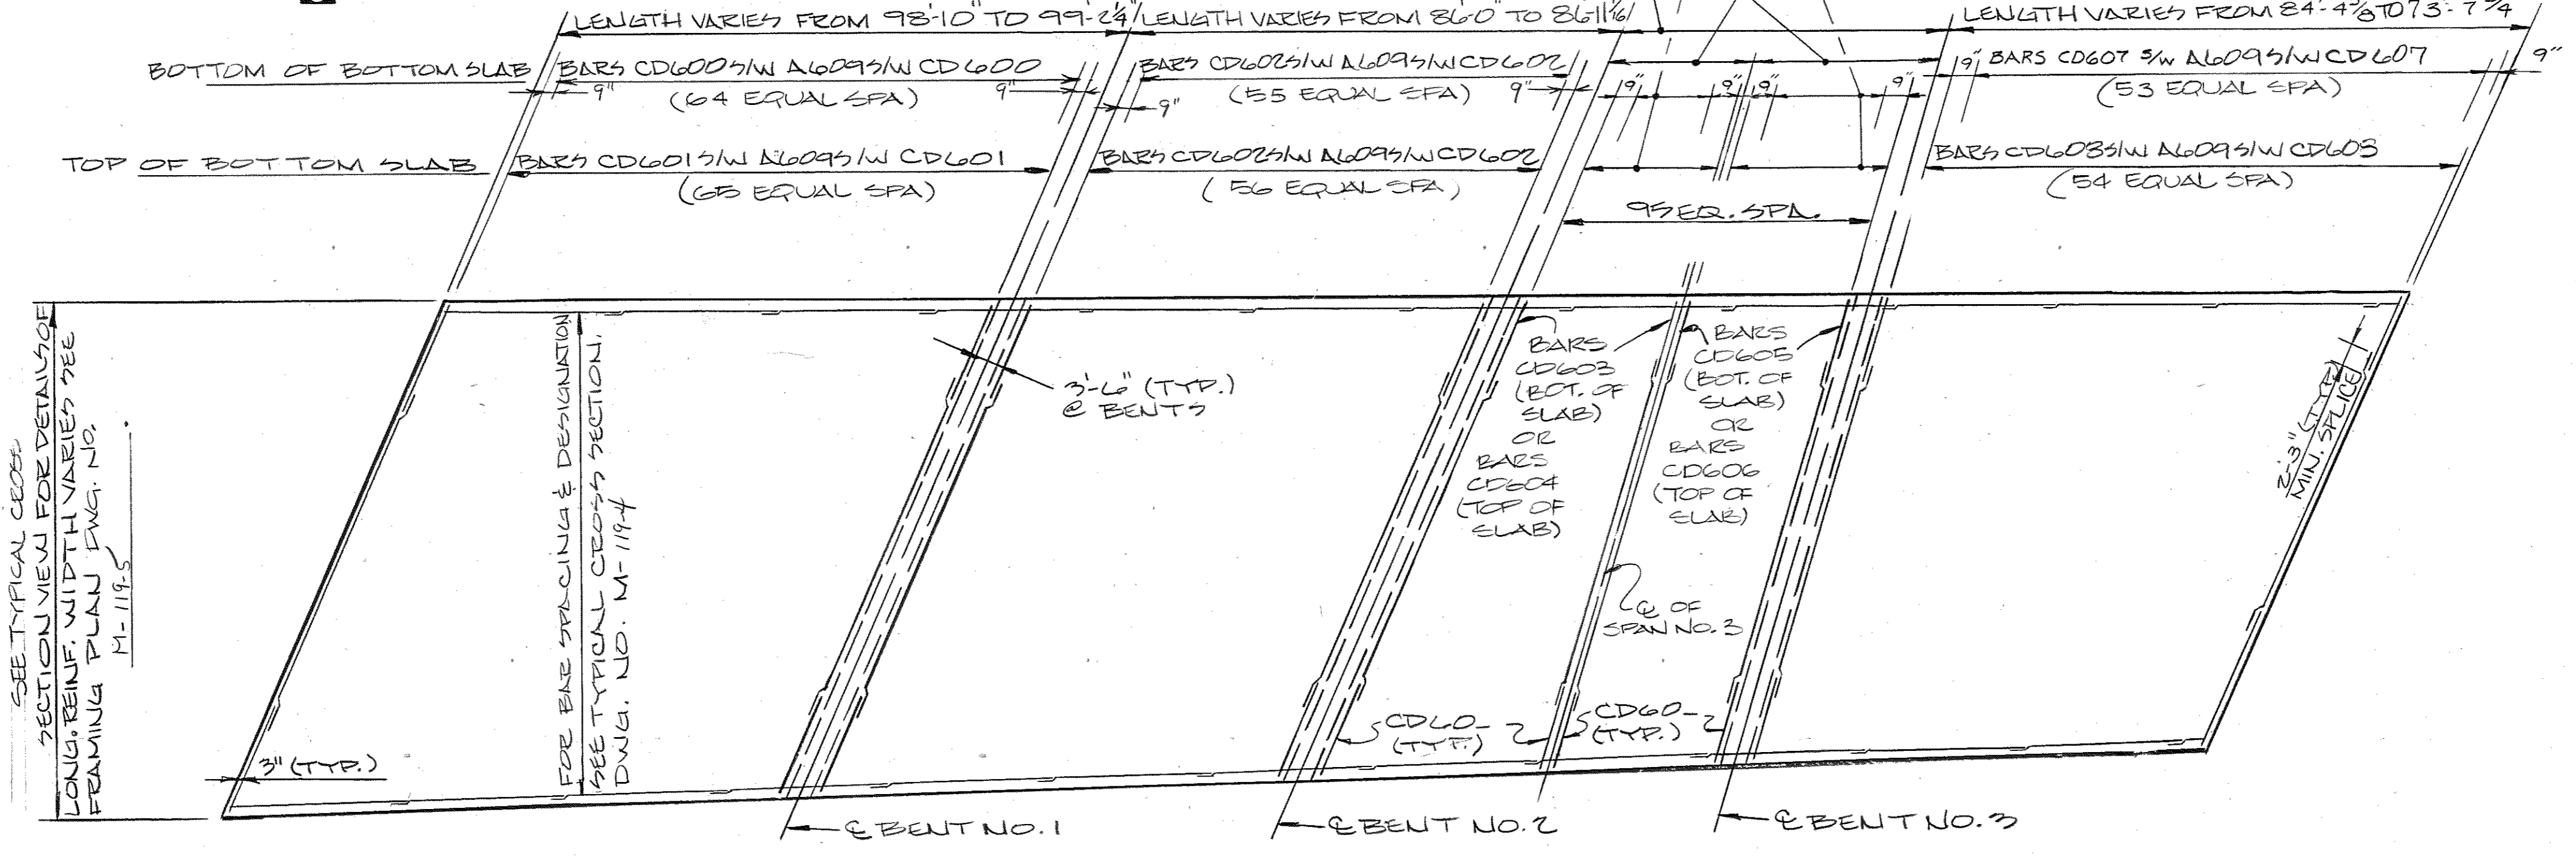 LENGTH VARIES FROM 98'-10" TO 99'-2¼"
LENGTH VARIES FROM 86'-0" TO 86'-11
LENGTH VARIES FROM 84'-4⅝ TO 73'-7¾
BOTTOM OF BOTTOM SLAB
BARS CD600 S/W A609 S/W CD600
(64 EQUAL SPA)
9"
9"
BARS CD602 S/W A609 S/W CD602
(55 EQUAL SPA)
9"
9"
9"
9"
9"
9"
9"
BARS CD607 S/W A609 S/W CD607
(53 EQUAL SPA)
9"
TOP OF BOTTOM SLAB
BARS CD601 S/W A609 S/W CD601
(65 EQUAL SPA)
BARS CD602 S/W A609 S/W CD602
(56 EQUAL SPA)
BARS CD608 S/W A609 S/W CD608
(54 EQUAL SPA)
95 EQ. SPA.
SEE TYPICAL CROSS
SECTION VIEW FOR DETAILS OF
LONG. REINF. WIDTH VARIES SEE
FRAMING PLAN DWG. NO.
M-119-5
FOR BAR SPACING & DESIGNATION
SEE TYPICAL CROSS SECTION.
DWG. NO. M-119-4
3'-6" (TYP.)
@ BENTS
BARS
CD603
(BOT. OF
SLAB)
OR
BARS
CD604
(TOP OF
SLAB)
BARS
CD605
(BOT. OF
SLAB)
OR
BARS
CD606
(TOP OF
SLAB)
2'-3" (TYP.)
MIN. SPLICE
℄ OF
SPAN NO. 3
CD60-
(TYP.)
CD60-
(TYP.)
3" (TYP.)
℄ BENT NO. 1
℄ BENT NO. 2
℄ BENT NO. 3